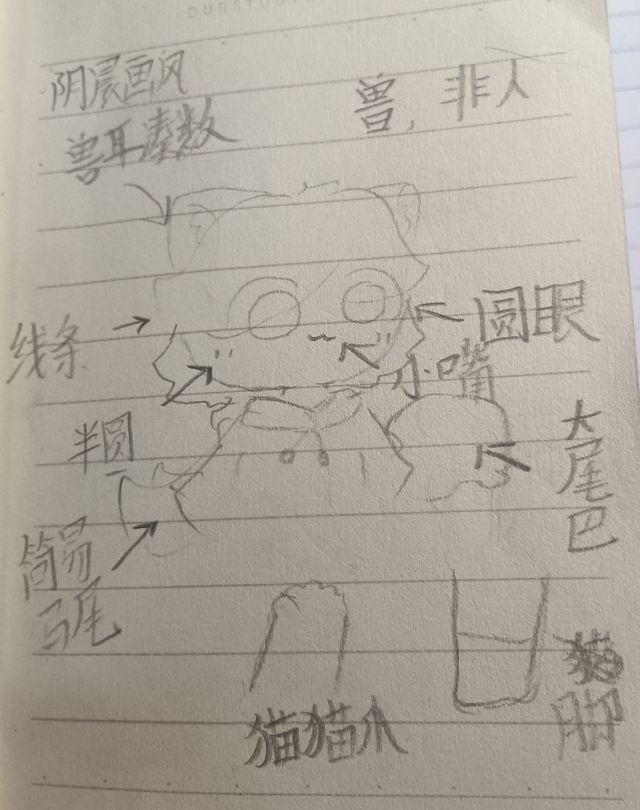 阴晨画风
兽耳素数
兽,非人
线条
圆眼
小嘴
半圆
大尾巴
简易
马尾
猫猫爪
猫脚